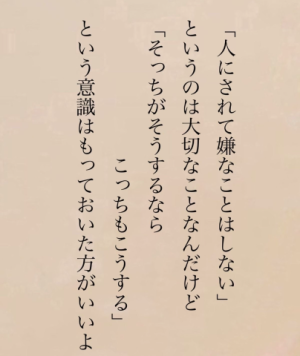 「人にされて嫌なことはしない」
というのは大切なことなんだけど
「そっちがそうするなら
こっちもこうする」
という意識はもっておいた方がいいよ